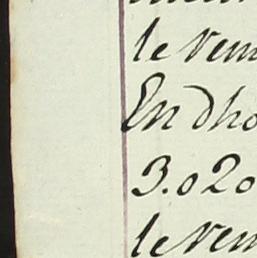 le vem
En dho
3.020
le vem